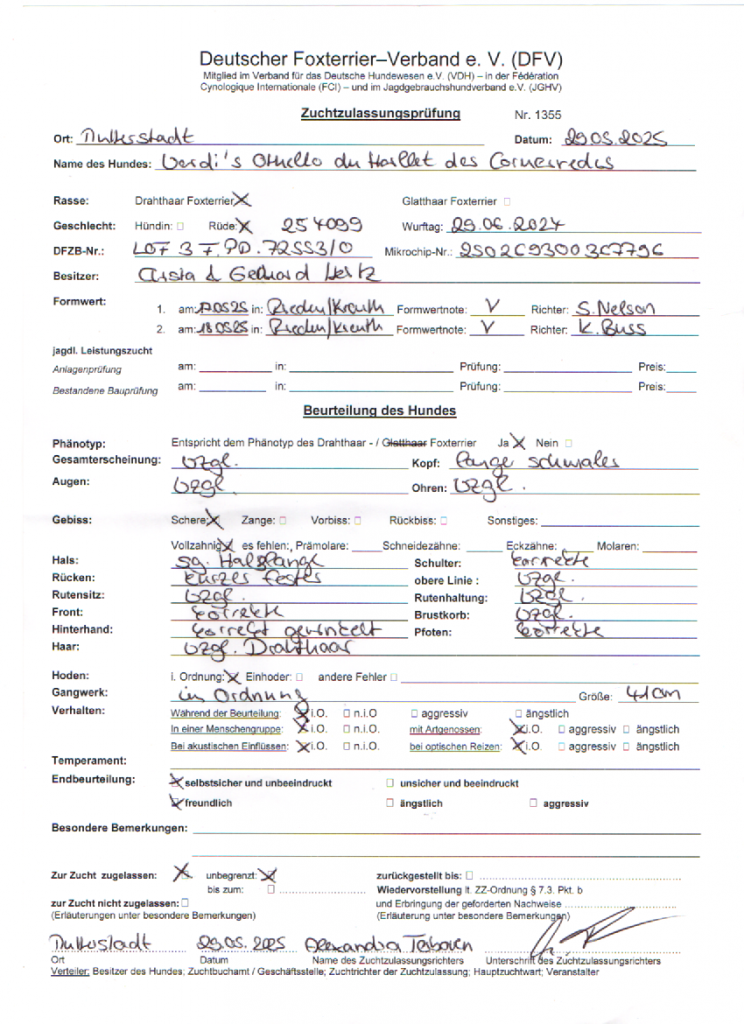 Deutscher Foxterrier–Verband e. V. (DFV)
Mitglied im Verband für das Deutsche Hundewesen e.V. (VDH) – in der Fédération
Cynologique Internationale (FCI) – und im Jagdgebrauchshundverband e.V. (JGHV)
Zuchtzulassungsprüfung Nr. 1355
Ort: Datum: 29.05.2025
Name des Hundes: Verdi's Othello du Hallet des Cornesredes
Rasse: Drahthaar Foxterrier Glatthaar Foxterrier
Geschlecht: Hündin: Rüde: 254099 Wurftag: 29.06.2024
DFZB-Nr.: LOF 3 F.PD.72553/0 Mikrochip-Nr.:
Besitzer: Christa & Gerhard
Formwert: 1. am: in: Rieden/Kreuth Formwertnote: V Richter: S. Nelson
2. am: 180525 in: Rieden/Kreuth Formwertnote: V Richter: K. Buss
jagdl. Leistungszucht
Anlagenprüfung am: in: Prüfung: Preis:
Bestandene Bauprüfung am: in: Prüfung: Preis:
Beurteilung des Hundes
Phänotyp: Entspricht dem Phänotyp des Drahthaar - / Glatthaar Foxterrier Ja Nein
Gesamterscheinung: vzgl. Kopf: lange schmales
Augen: vzgl. Ohren: vzgl.
Gebiss: Schere: Zange: Vorbiss: Rückbiss: Sonstiges:
Vollzahnig es fehlen:, Prämolare: Schneidezähne: Eckzähne: Molaren:
Hals: sg. Halslänge Schulter: korrekte
Rücken: kurzes festes obere Linie : vzgl.
Rutensitz: vzgl. Rutenhaltung: vzgl.
Front: korrekte Brustkorb: vzgl.
Hinterhand: korrekt gewinkelt Pfoten: korrekte
Haar: vzgl. Drahthaar
Hoden: i. Ordnung: Einhoder: andere Fehler
Gangwerk: in Ordnung Größe: 41cm
Verhalten: Während der Beurteilung: i.O. n.i.O aggressiv ängstlich
In einer Menschengruppe: i.O. n.i.O. mit Artgenossen: i.O. aggressiv ängstlich
Bei akustischen Einflüssen: i.O. n.i.O. bei optischen Reizen: i.O. aggressiv ängstlich
Temperament:
Endbeurteilung: selbstsicher und unbeeindruckt unsicher und beeindruckt
freundlich ängstlich aggressiv
Besondere Bemerkungen:
Zur Zucht zugelassen: unbegrenzt: zurückgestellt bis:
bis zum: Wiedervorstellung lt. ZZ-Ordnung § 7.3. Pkt. b
zur Zucht nicht zugelassen: und Erbringung der geforderten Nachweise
(Erläuterungen unter besondere Bemerkungen) (Erläuterung unter besondere Bemerkungen)
29.05.2025 Alexandra
Ort Datum Name des Zuchtzulassungsrichters Unterschrift des Zuchtzulassungsrichters
Verteiler: Besitzer des Hundes; Zuchtbuchamt / Geschäftsstelle; Zuchtrichter der Zuchtzulassung; Hauptzuchtwart; Veranstalter